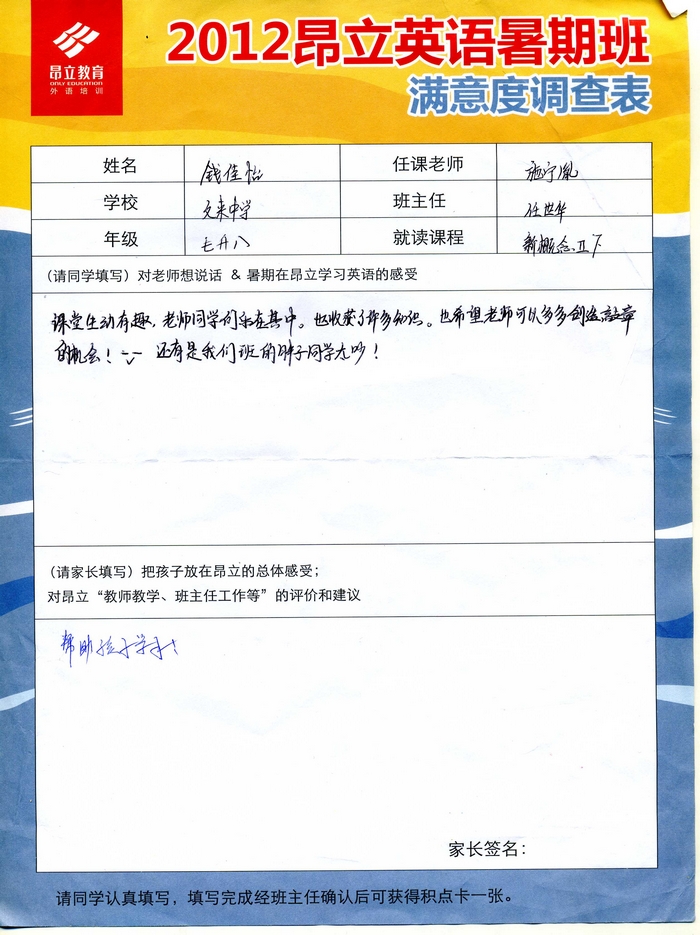 昂立教育
ONLY EDUCATION
外语培训
2012昂立英语暑期班
满意度调查表
姓名 钱佳怡 任课老师 施宁胤
学校 文来中学 班主任 任世华
年级 七升八 就读课程 新概念Ⅱ下
(请同学填写) 对老师想说话 & 暑期在昂立学习英语的感受
课堂生动有趣,老师同学们乐在其中。也收获了许多知识。也希望老师可以多多创造盖章
的机会! 还有是我们班的胖子同学太吵!
(请家长填写) 把孩子放在昂立的总体感受;
对昂立“教师教学、班主任工作等”的评价和建议
帮助孩子学
家长签名:
请同学认真填写,填写完成经班主任确认后可获得积点卡一张。